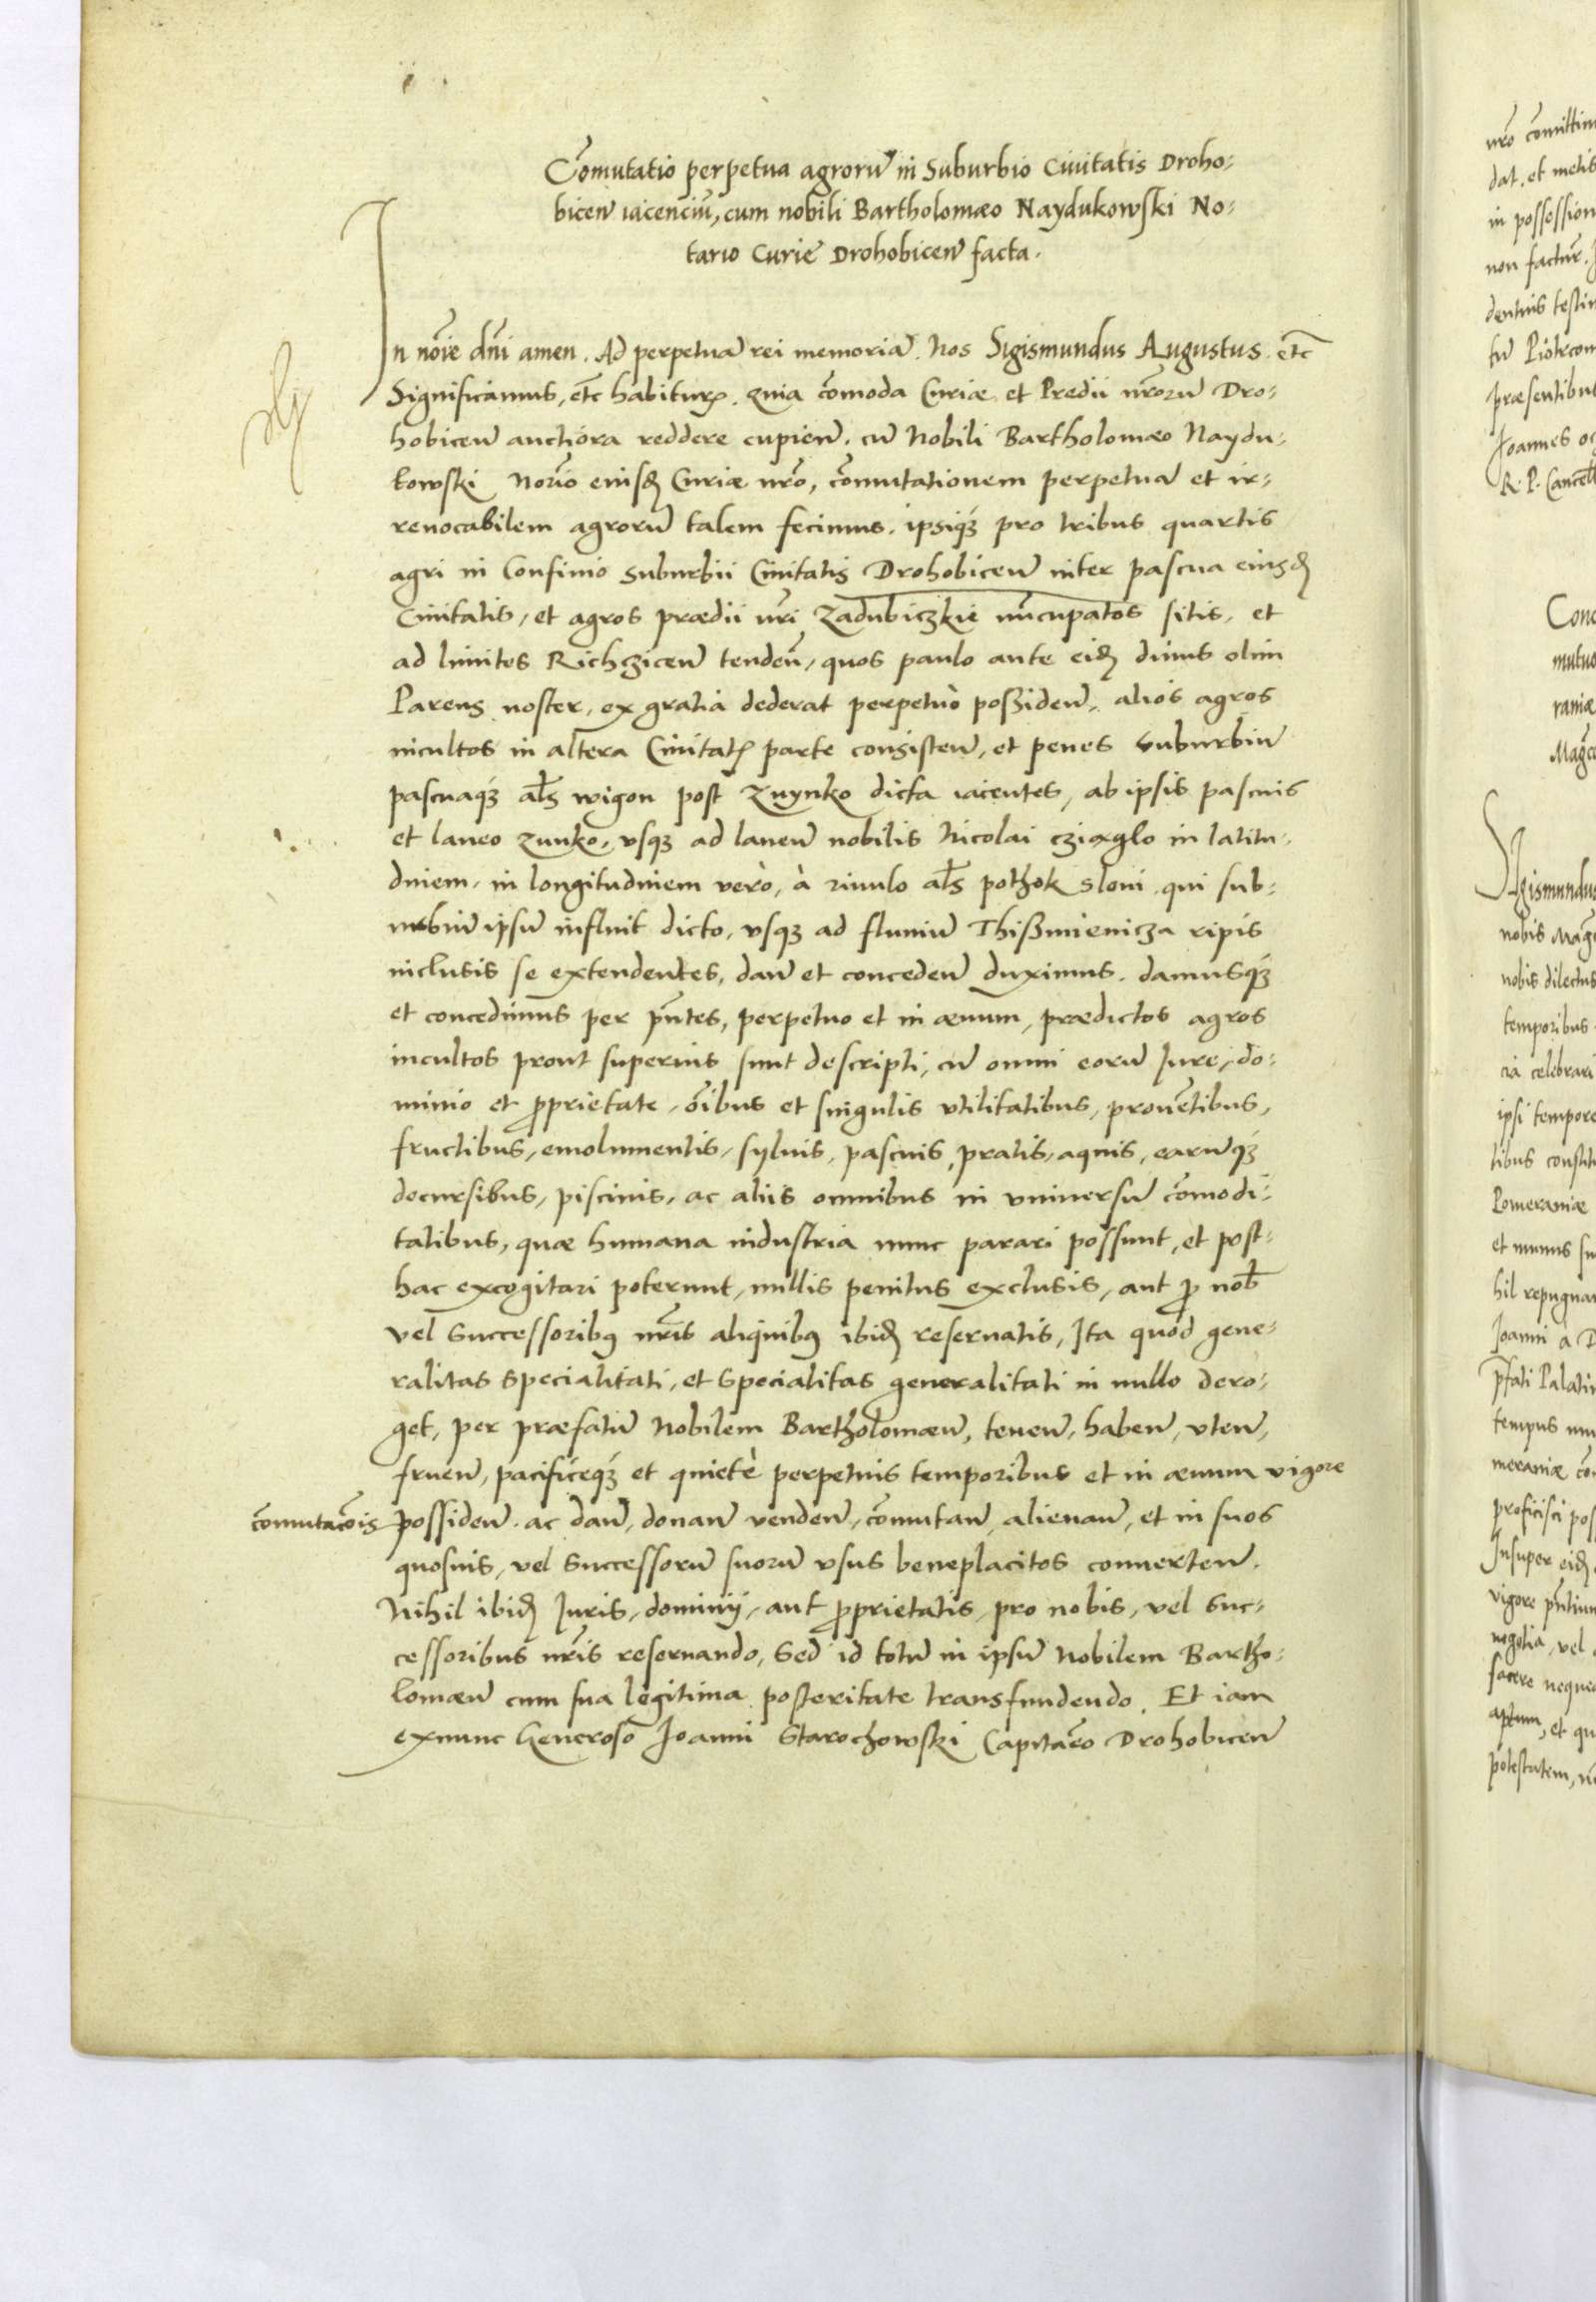 Cõmutatio perpetua agrorũ in Suburbio Ciuitatis Droho-
bicen̄ iacenciũ, cum nobili Bartholomæo Naydukowski No-
tario Curie Drohobicen̄ facta.
In nõie dñi amen. Ad perpetuã rei memoriã. Nos Sigismundus Augustus. etc̃
Significamus, etc̃ habiturꝝ. Quia cõmoda Curiæ et Predii nr̃orũ Dro-
hobicen̄ auctiora reddere cupien̄. cũ Nobili Bartholomæo Naydu-
kowski Nor̃io eiusꝗ Curiæ nr̃o, cõmutationem perpetuã et ir-
reuocabilem agrorũ talem fecimus. ipsiqꝫ pro tribus quartis
agri in Confinio suburbii Ciuitatis Drohobicen̄ inter pascua eiusꝗ
Ciuitatis, et agros prædii nr̃i Zadubiczkie nũcupatos sitis, et
ad limites Richczicen̄ tenden̄, quos paulo ante eiꝗ diuus olim
Parens noster, ex gratia dederat perpetuò poßiden̄, alios agros
incultos in altera Ciuitatꝭ parte consisten̄, et penes suburbiũ
pascuaqꝫ als̃ wigon post Zuynko dicta iacentes, ab ipsis pascuis
et laneo Zunko, vsqꝫ ad laneũ nobilis Nicolai cziąglo in latitu-
dinem, in longitudinem verò, à riuulo als̃ pothok sloni qui sub-
urbiũ ipsũ influit dicto, vsqꝫ ad fluuiũ Thißmienicza ripis
inclusis se extendentes, dan̄ et conceden̄ duximus. damusqꝫ
et concedimus per pñtes, perpetuo et in æuum, prædictos agros
incultos prout superius sunt descripti, cũ omni eorũ Jure, do-
minio et ꝓprietate, õibus et singulis vtilitatibus, prouẽtibus,
fructibus, emolumentis, syluis, pascuis, pratis, aquis, earũqꝫ
decursibus, piscinis, ac aliis omnibus in vniuersũ cõmodi-
tatibus, quæ humana industria nunc parari possunt, et post-
hac excogitari poterunt, nullis penitus exclusis, aut ꝓ nob̃
vel Successoribꝰ nr̃is aliquibꝰ ibiꝗ reseruatis, Ita quod gene-
ralitas specialitati, et specialitas generalitati in nullo dero-
get, per præfatũ Nobilem Bartholomæũ, tenen̄, haben̄, vten̄,
fruen̄, pacificeqꝫ et quietè perpetuis temporibus et in æuum vigore
cõmutac̃ois possiden̄. ac dan̄, donan̄ venden̄, cõmutan̄, alienan̄, et in suos
quosuis, vel Successorũ suorũ vsus beneplacitos conuerten̄.
Nihil ibiꝗ Juris, dominij, aut ꝓprietatis, pro nobis, vel Suc-
cessoribus nr̃is reseruando, Sed id totũ in ipsũ Nobilem Bartho-
lomæũ cum sua legitima posteritate transfundendo. Et iam
exnunc Generoso Joanni Starochowski Capitãeo Drohobicen̄
nr̃o cõmittim
dat. et metis
in possession
non factur̃.
dentius testim
tũ Piotrcow
præsentibus
Joannes oc
R. P. Cancell
Conc
mutuo
raniæ
Magc̃
Sigismundus
nobis Mag
nobis dilectus
temporibus
cia celebrari
ipsi tempore
libus constit
Pomeraniæ
et munus su
hil repugnan
Joanni à D
pr̃fati Palatin
tempus
meraniæ cõ
proficisci pos
Insuper eiꝗ
vigore pñtium
negotia, vel
facere neque
aptum, et qu
potestatem,